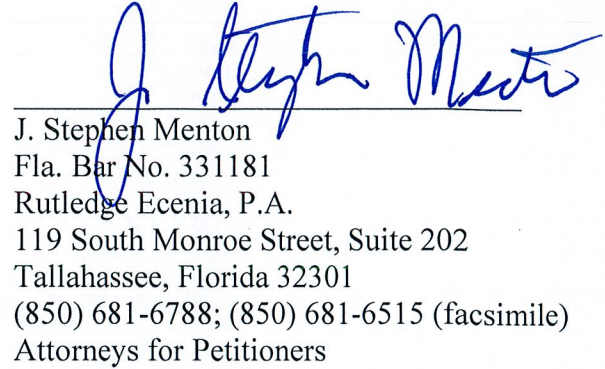 J Stephen Menton
J. Stephen Menton
Fla. Bar No. 331181
Rutledge Ecenia, P.A.
119 South Monroe Street, Suite 202
Tallahassee, Florida 32301
(850) 681-6788; (850) 681-6515 (facsimile)
Attorneys for Petitioners